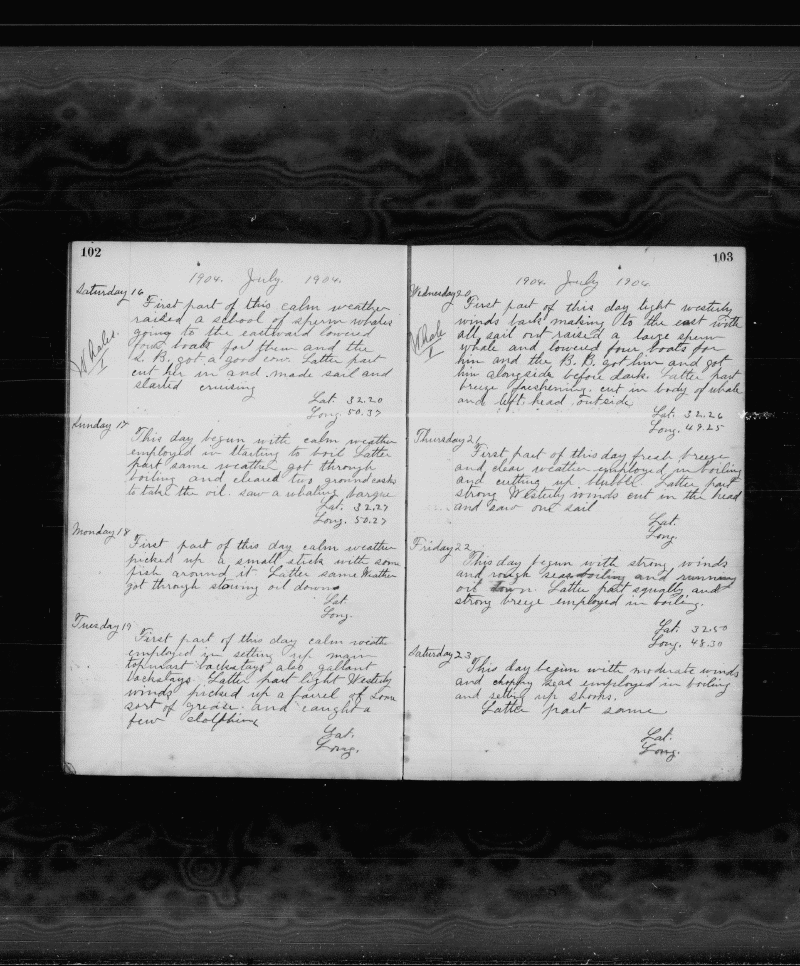 102
1904. July. 1904.
Saturday 16
First part of this calm weather
raised a school of sperm whales
going to the eastward lowered
four boats for them and the
S. B. got a good cow. Latter part
cut her in and made sail and
started cruising
Whales.
I
Lat. 32.20
Long 50.37
Sunday 17
This day begun with calm weather
employed in Starting to boil Latter
part same weather got through
boiling and cleared two ground casks
to take the oil. saw a whaling barque
Lat. 32.27
Long. 50.27
Monday 18
First part of this day calm weather
picked up a small stick with some
fish around it Latter same Weather
got through stowing oil down
Lat
Long.
Tuesday 19
First part of this day calm weath
employed in setting up main
topmast backstays also gallant
backstays. Latter part light Westerly
winds picked up a parrel of some
sort of grease. and caught a
few dolphins
Lat.
Long.
103
1904. July 1904.
Wednesday 20
First part of this day light westerly
winds bark making to the east with
all sail out raised a large sperm
whale and lowered four boats for
him and the B. B. got him and got
him alongside before dark. Latter part
breeze freshening. cut in body of whale
and left head outside
Whale
I
Lat. 32.26
Long. 49.25
Thursday 21
First part of this day fresh breeze
and clear weather employed in boiling
and cutting up blubber. Latter part
strong Westerly winds cut in the head
and saw one sail
Lat.
Long.
Friday 22
This day begun with strong winds
and rough seas boiling and running
oil down. Latter part squally and
strong breeze employed in boiling.
Lat. 32.50
Long. 48.30
Saturday 23
This day begun with moderate winds
and choppy seas employed in boiling
and setting up shooks.
Latter part same
Lat.
Long.